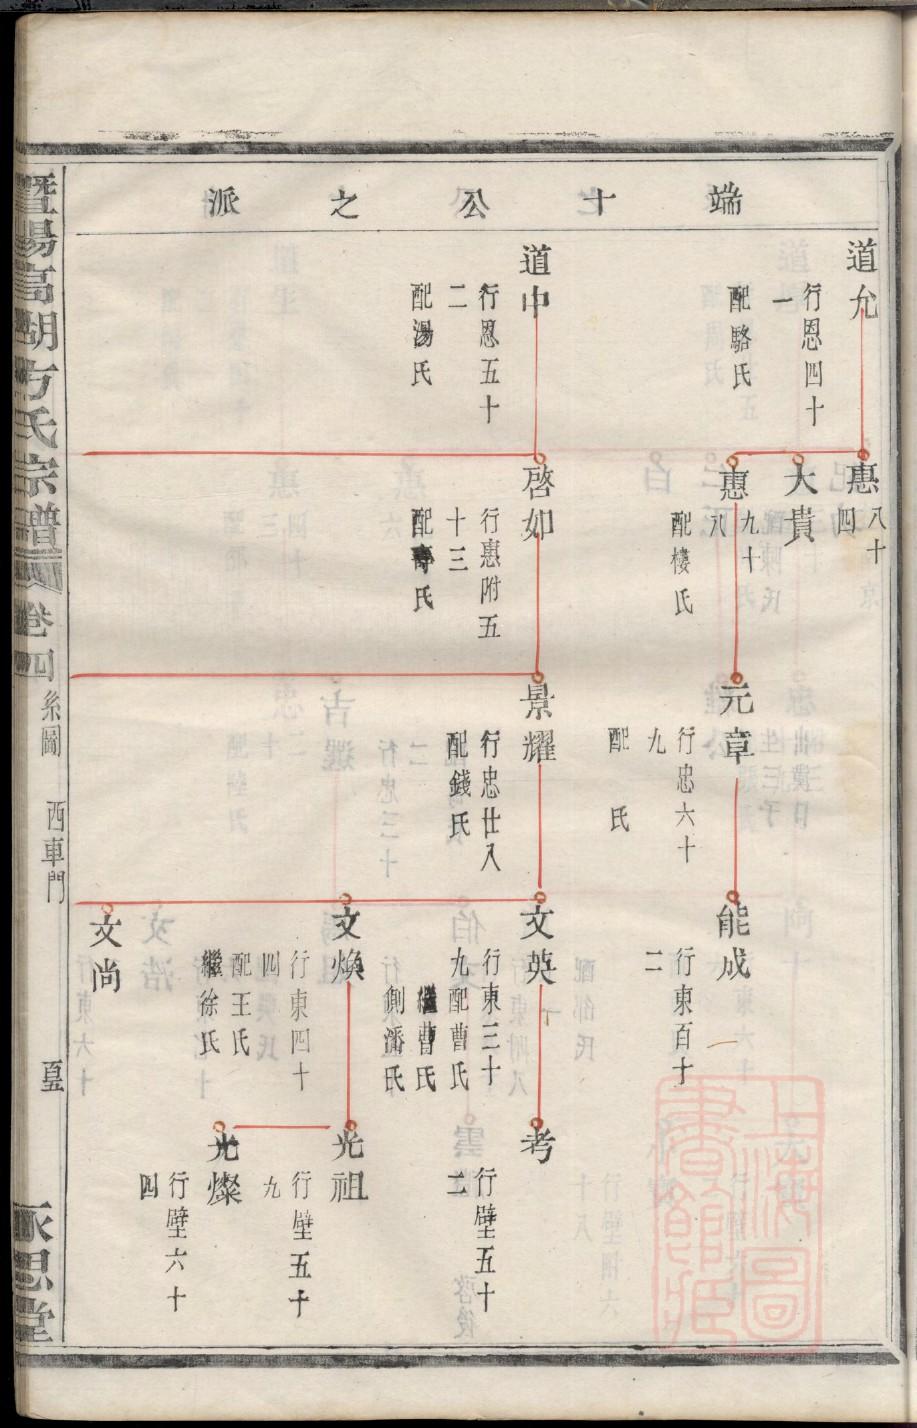 端十公之派
道允
行恩四十
一
配駱氏
道中
行恩五十
二
配湯氏
惠
八十
四
大貴
惠
九十
八
配樓氏
啓如
行惠附五
十三
配壽氏
元章
行忠六十
九
配 氏
景耀
行忠廿八
配錢氏
能成
行東百十
二
文英
行東三十
九配曹氏
繼曹氏
側潘氏
文煥
行東四十
四
配王氏
繼徐氏
文尚
考
行壁五十
二
光祖
行壁五十
九
光燦
行壁六十
四
暨陽高湖方氏宗譜
卷四
系圖
西車門
永思堂